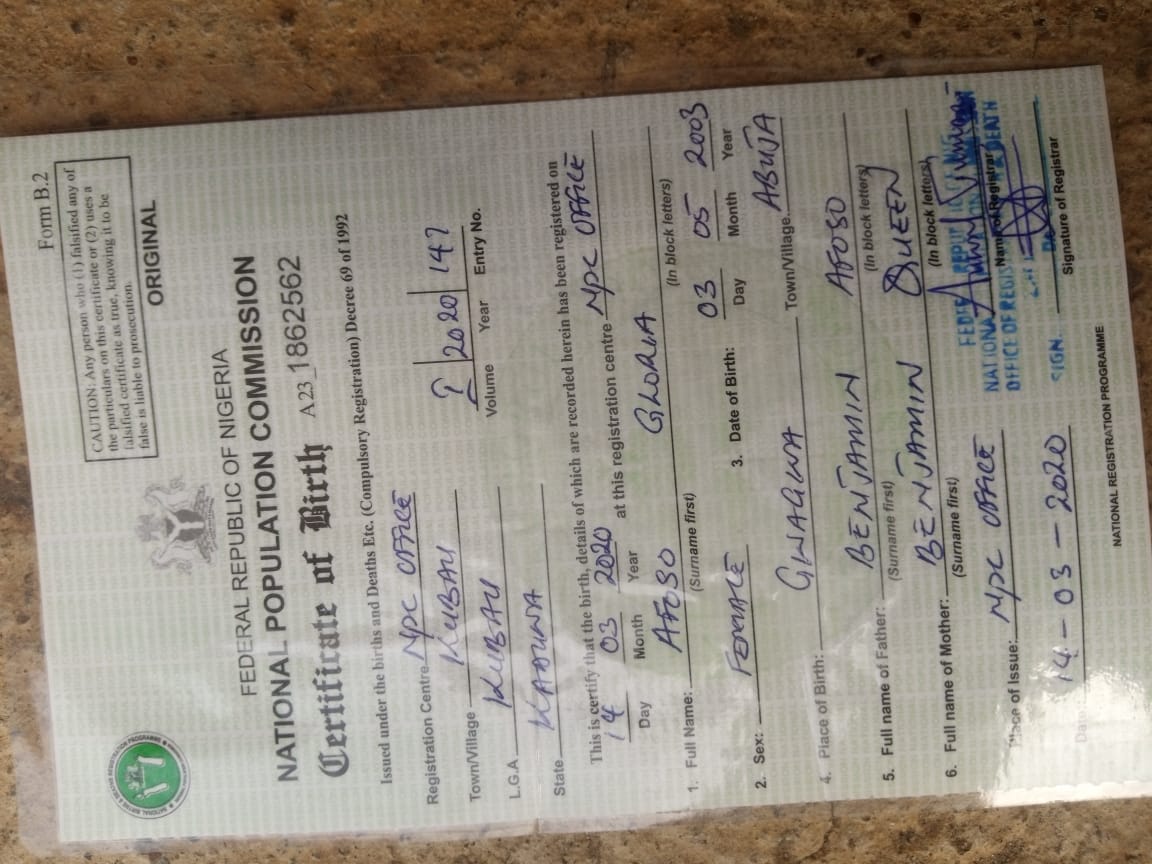 Form B.2
CAUTION: Any person who (1) falsified any of
the particulars on this certificate or (2) uses a
falsified certificate as true, knowing it to be
false is liable to prosecution.
ORIGINAL
FEDERAL REPUBLIC OF NIGERIA
NATIONAL POPULATION COMMISSION
Certificate of Birth A23_1862562
Issued under the births and Deaths Etc. (Compulsory Registration) Decree 69 of 1992
Registration Centre NPC OFFICE
Town/Village KUBAU 2020 147
L.G.A. KUBAU Volume Year Entry No.
State KADUNA
This is certify that the birth, details of which are recorded herein has been registered on
14 03 2020 at this registration centre NPC OFFICE
Day Month Year
1. Full Name: AFOSO GLORIA
(Surname first) (In block letters)
2. Sex: FEMALE 3. Date of Birth: 03 05 2003
Day Month Year
4. Place of Birth: GWAGWA Town/Village ABUJA
5. Full name of Father: BENJAMIN AFOSO
(Surname first) (In block letters)
6. Full name of Mother: BENJAMIN QUEEN
(Surname first) (In block letters)
Place of Issue: NPC OFFICE Name of Registrar
OFFICE OF REGIST DEATH
SIGN.
14 - 03 - 2020 Signature of Registrar
NATIONAL REGISTRATION PROGRAMME